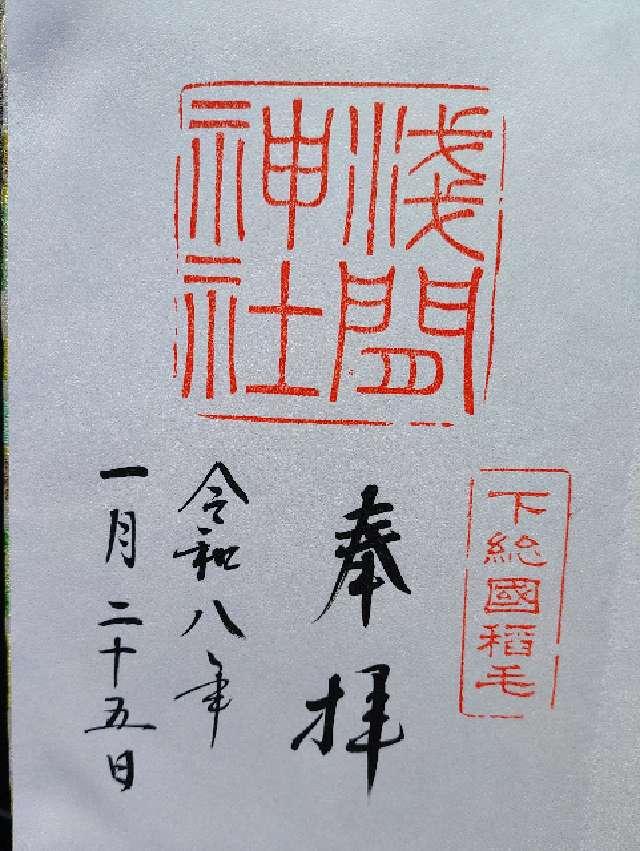 浅間
神社
下総國稲毛
奉拝
令和八年
一月二十五日